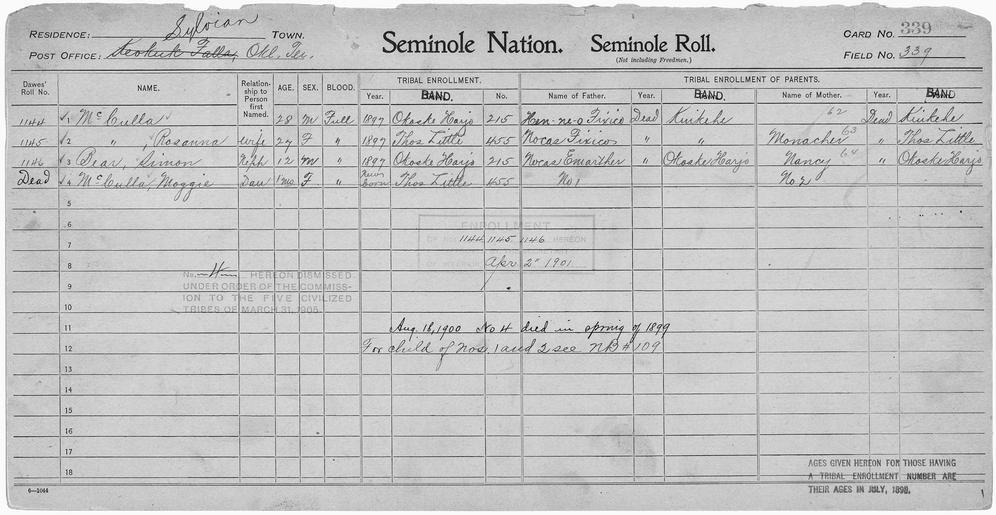 RESIDENCE: Sylvian TOWN.
POST OFFICE: Keokuk Falls, Okl. Ter.
Seminole Nation. Seminole Roll.
(Not including Freedmen.)
CARD NO. 339
FIELD NO. 339
Dawes' Roll No. NAME. Relationship to Person first Named. AGE. SEX. BLOOD. TRIBAL ENROLLMENT. TRIBAL ENROLLMENT OF PARENTS.
Year. BAND. No. Name of Father. Year. BAND. Name of Mother. Year. BAND.
1144 1 McCulla 28 M Full 1897 Okoske Harjo 215 Hen-ne-o Fixico Dead Kinkehe 62 Dead Kinkehe
1145 2 " , Rosanna Wife 27 F " 1897 Thos Little 455 Nocas Fixicos " " Monacher 63 " Thos Little
1146 3 Bear, Simon 12 M " 1897 Okoske Harjo 215 Nocas Emarther " Okoske Harjo Nancy 64 " Okoske Harjo
Dead 4 McCulla, Maggie Dau 1mo F " New Born Thos Little 455 No 1 No 2
5
6
ENROLLMENT
OF NOS. 1144 1145 1146 HEREON
7
8
Apr 2" 1901
No. 4 HEREON DISMISSED
UNDER ORDER OF THE COMMISS-
ION TO THE FIVE CIVILIZED
TRIBES OF MARCH 31, 1905.
9
10
11 Aug. 18, 1900 No 4 died in spring of 1899
12 For child of Nos. 1 and 2 see NB # 109
13
14
15
16
17
18
AGES GIVEN HEREON FOR THOSE HAVING
A TRIBAL ENROLLMENT NUMBER ARE
THEIR AGES IN JULY, 1898.
6—1044